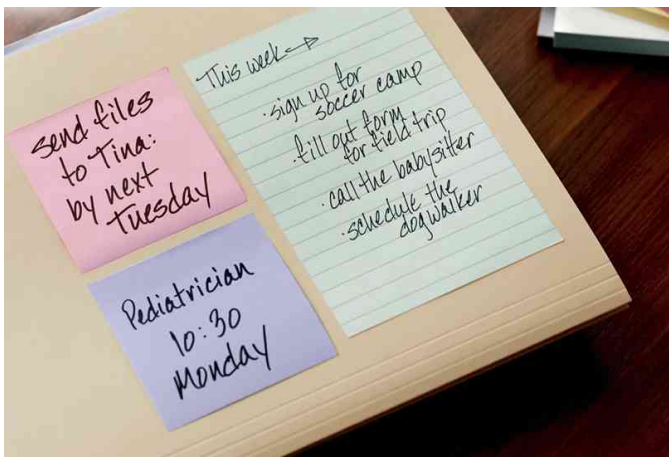 send files
to Tina:
by next
Tuesday
Pediatrician
10:30
Monday
This week →
· sign up for
soccer camp
· fill out form
for field trip
· call the babysitter
· schedule the
dogwalker